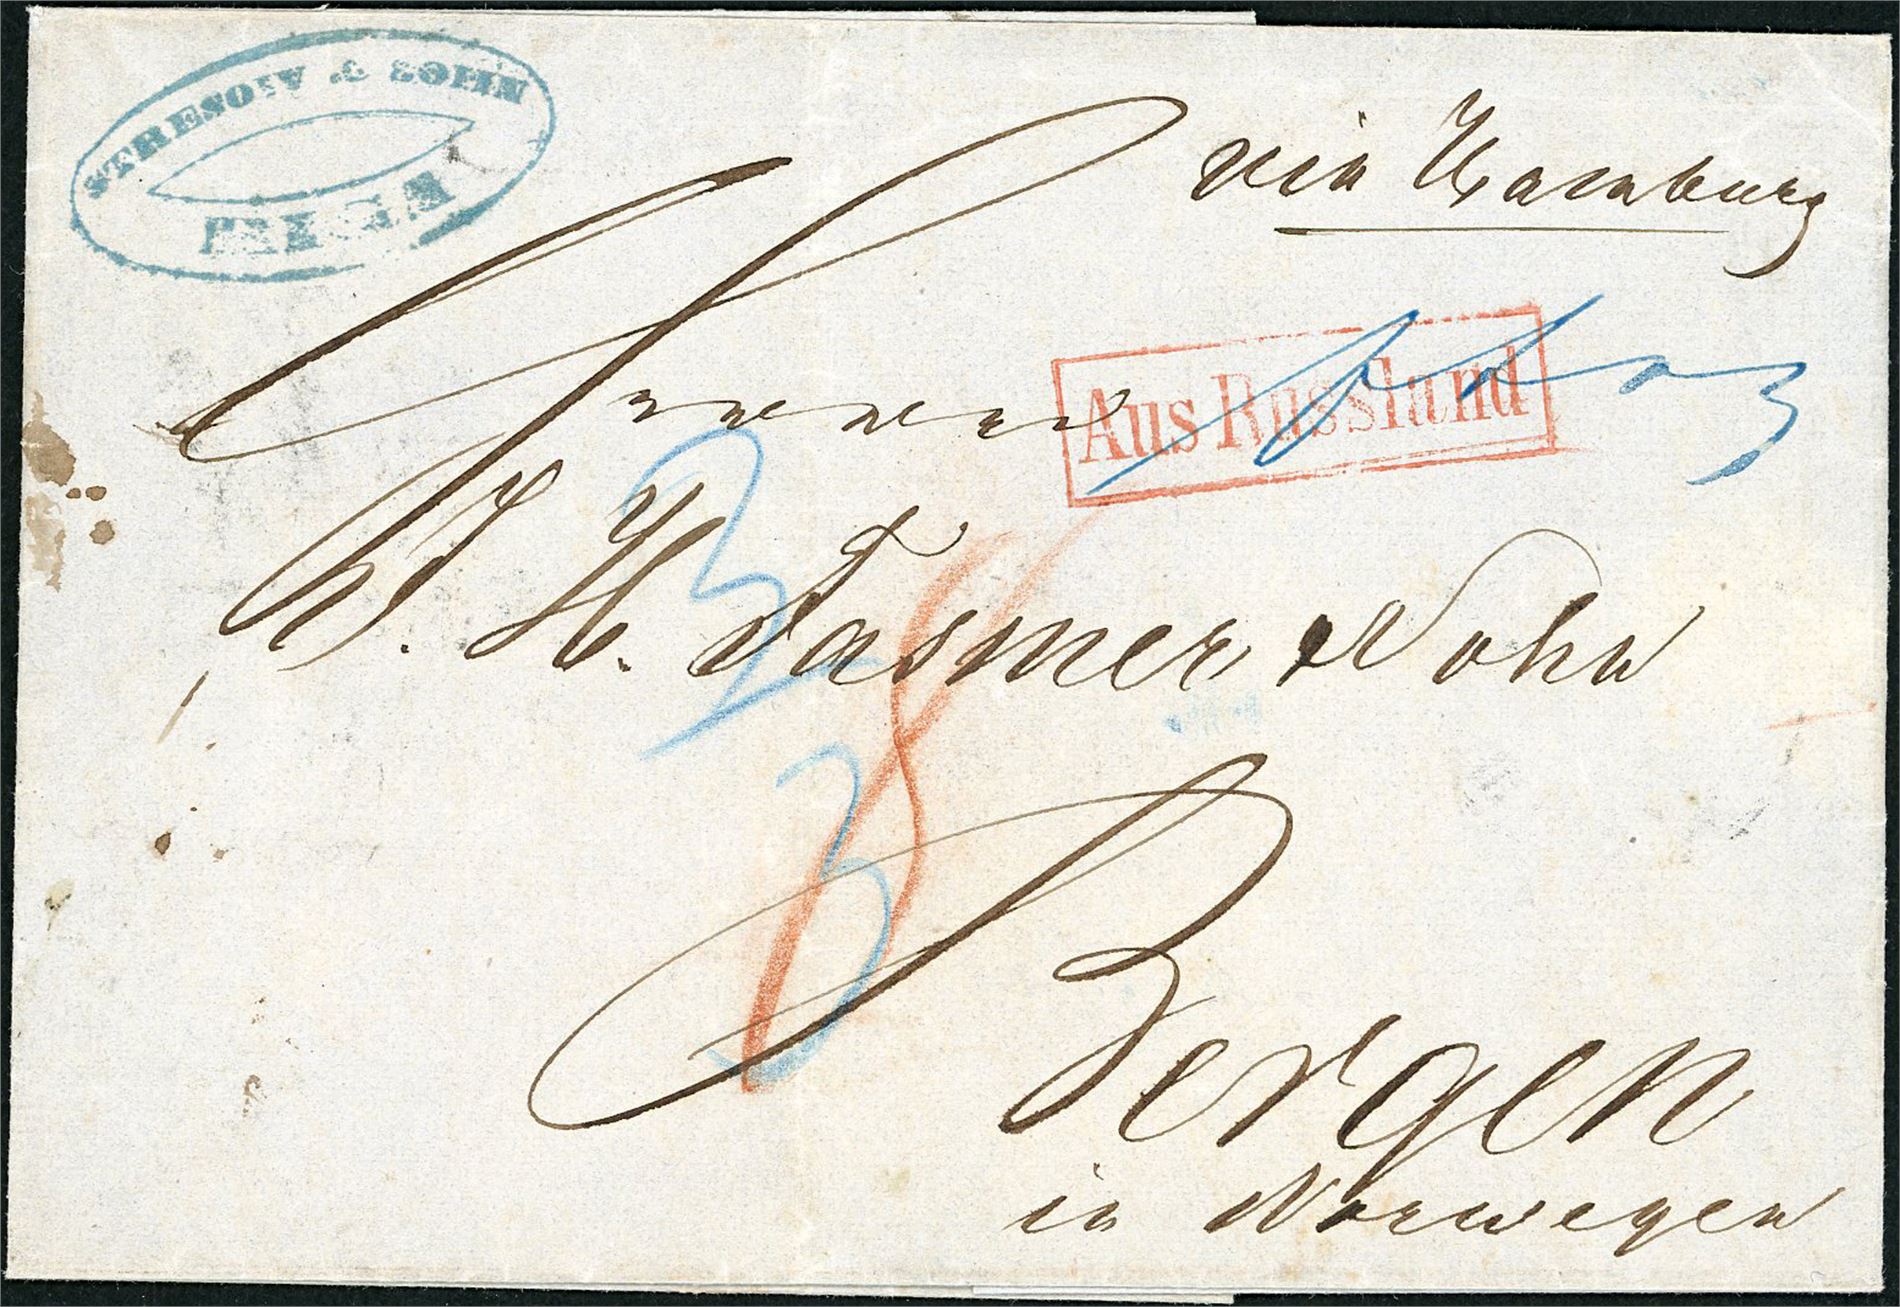 STRESOW & SOHN
via Hamburg
Aus Russland
Herren
J. H. Fasmer & Sohn
Bergen
in Norwegen